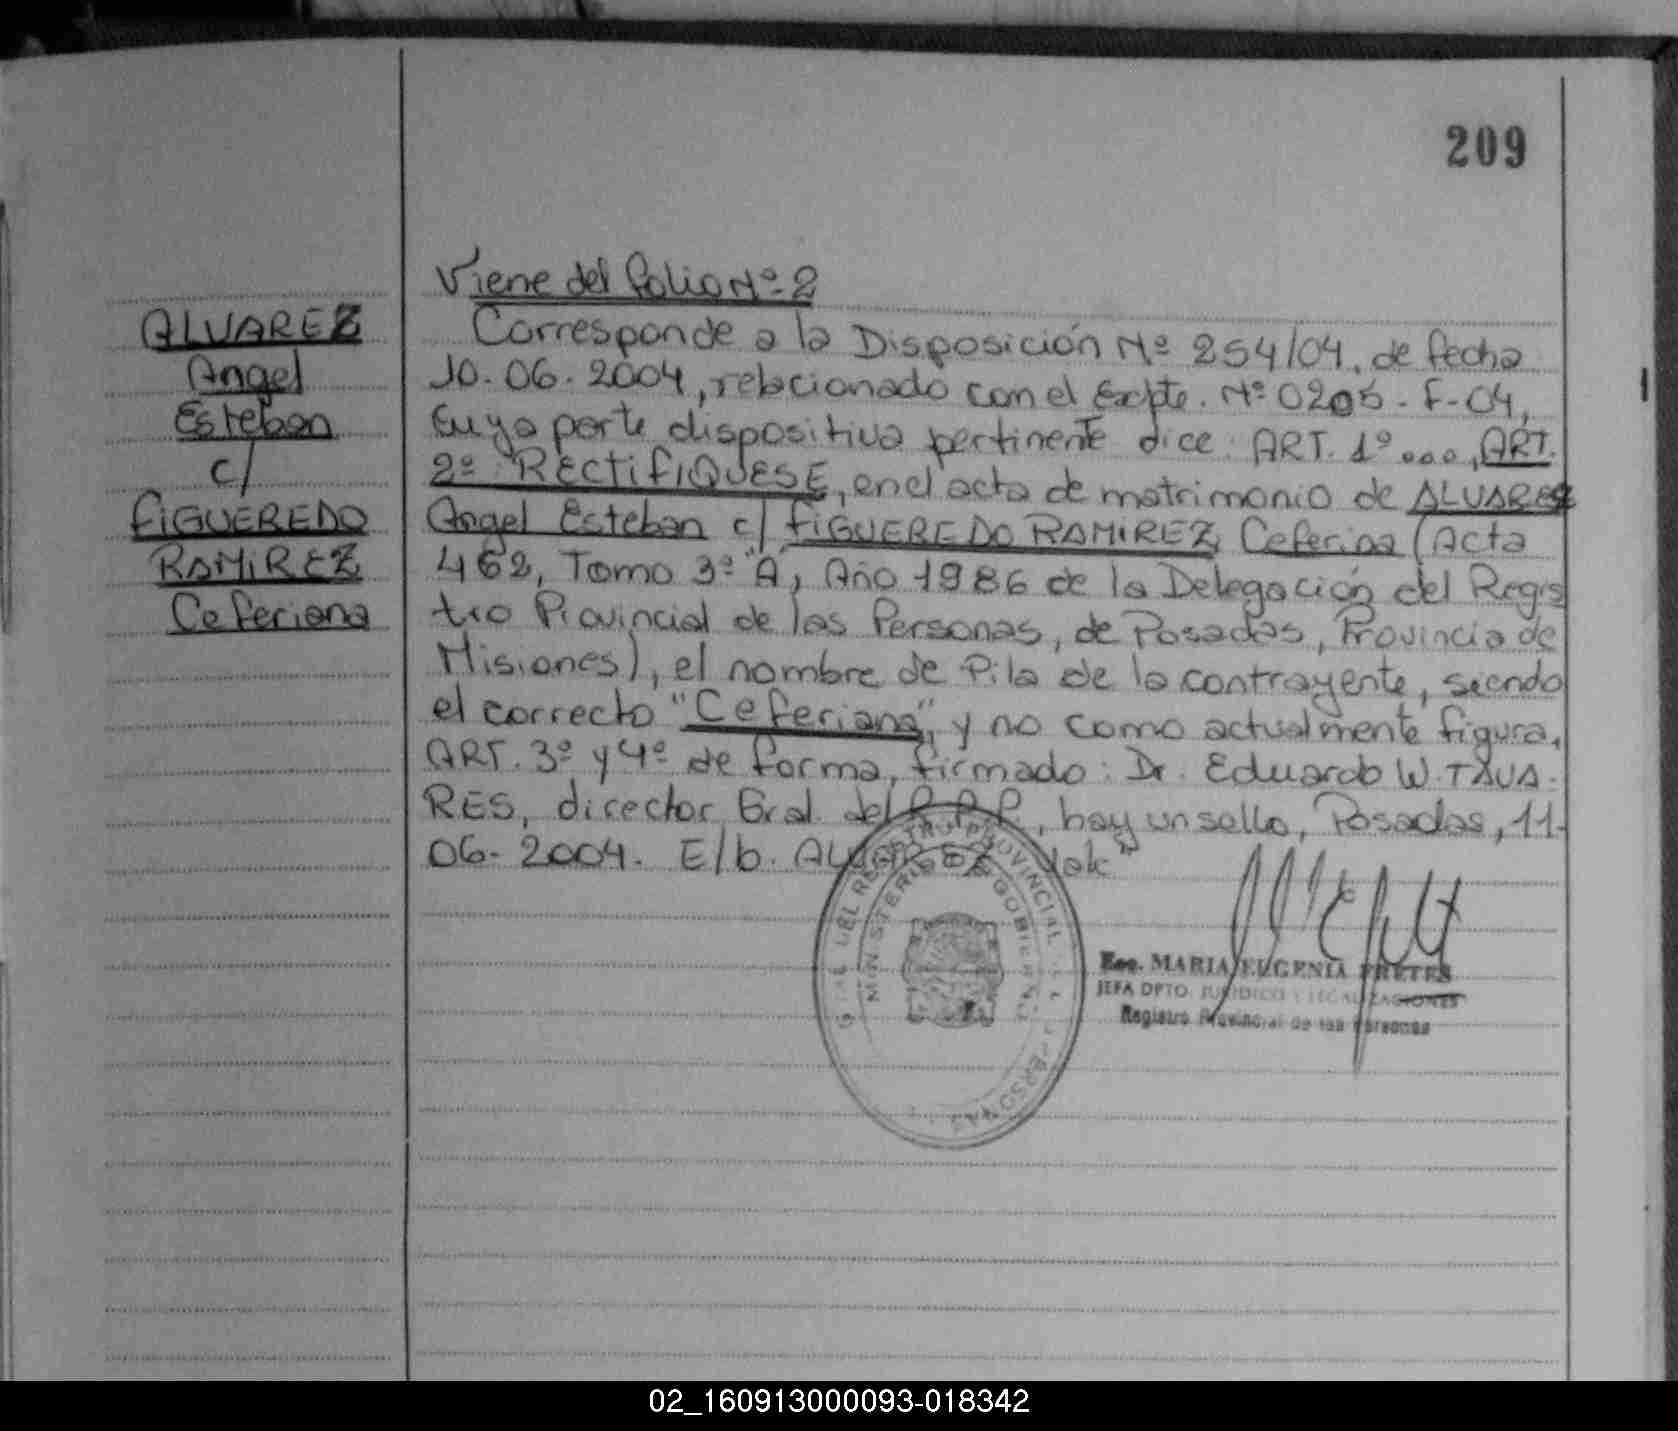 209
ALVAREZ
Angel
Esteban
c/
FIGUEREDO
RAMIREZ
Ceferiana
Viene del folio Nº 2
Corresponde a la Disposición Nº 254/04, de fecha
10.06.2004, relacionado con el Expte. Nº 0205-F-04,
cuya parte dispositiva pertinente dice: ART. 1º..., ART.
2º: RECTIFIQUESE, en el acta de matrimonio de ALVAREZ
Angel Esteban c/ FIGUEREDO RAMIREZ, Ceferina (Acta
462, Tomo 3º "A", Año 1986 de la Delegación del Regis
tro Provincial de las Personas, de Posadas, Provincia de
Misiones), el nombre de Pila de la contrayente, siendo
el correcto "Ceferiana", y no como actualmente figura.
ART. 3º y 4º de forma, firmado: Dr. Eduardo W. TAVA-
RES, director Gral del R.P.P., hay un sello, Posadas, 11-
06-2004. E/b. ALVAREZ
GRAL DEL REGISTRO PROVINCIAL DE LAS PERSONAS
MINISTERIO DE GOBIERNO
Esc. MARIA EUGENIA PRETES
JEFA DPTO. JURIDICO Y LEGALIZACIONES
Registro Provincial de las Personas
02_160913000093-018342